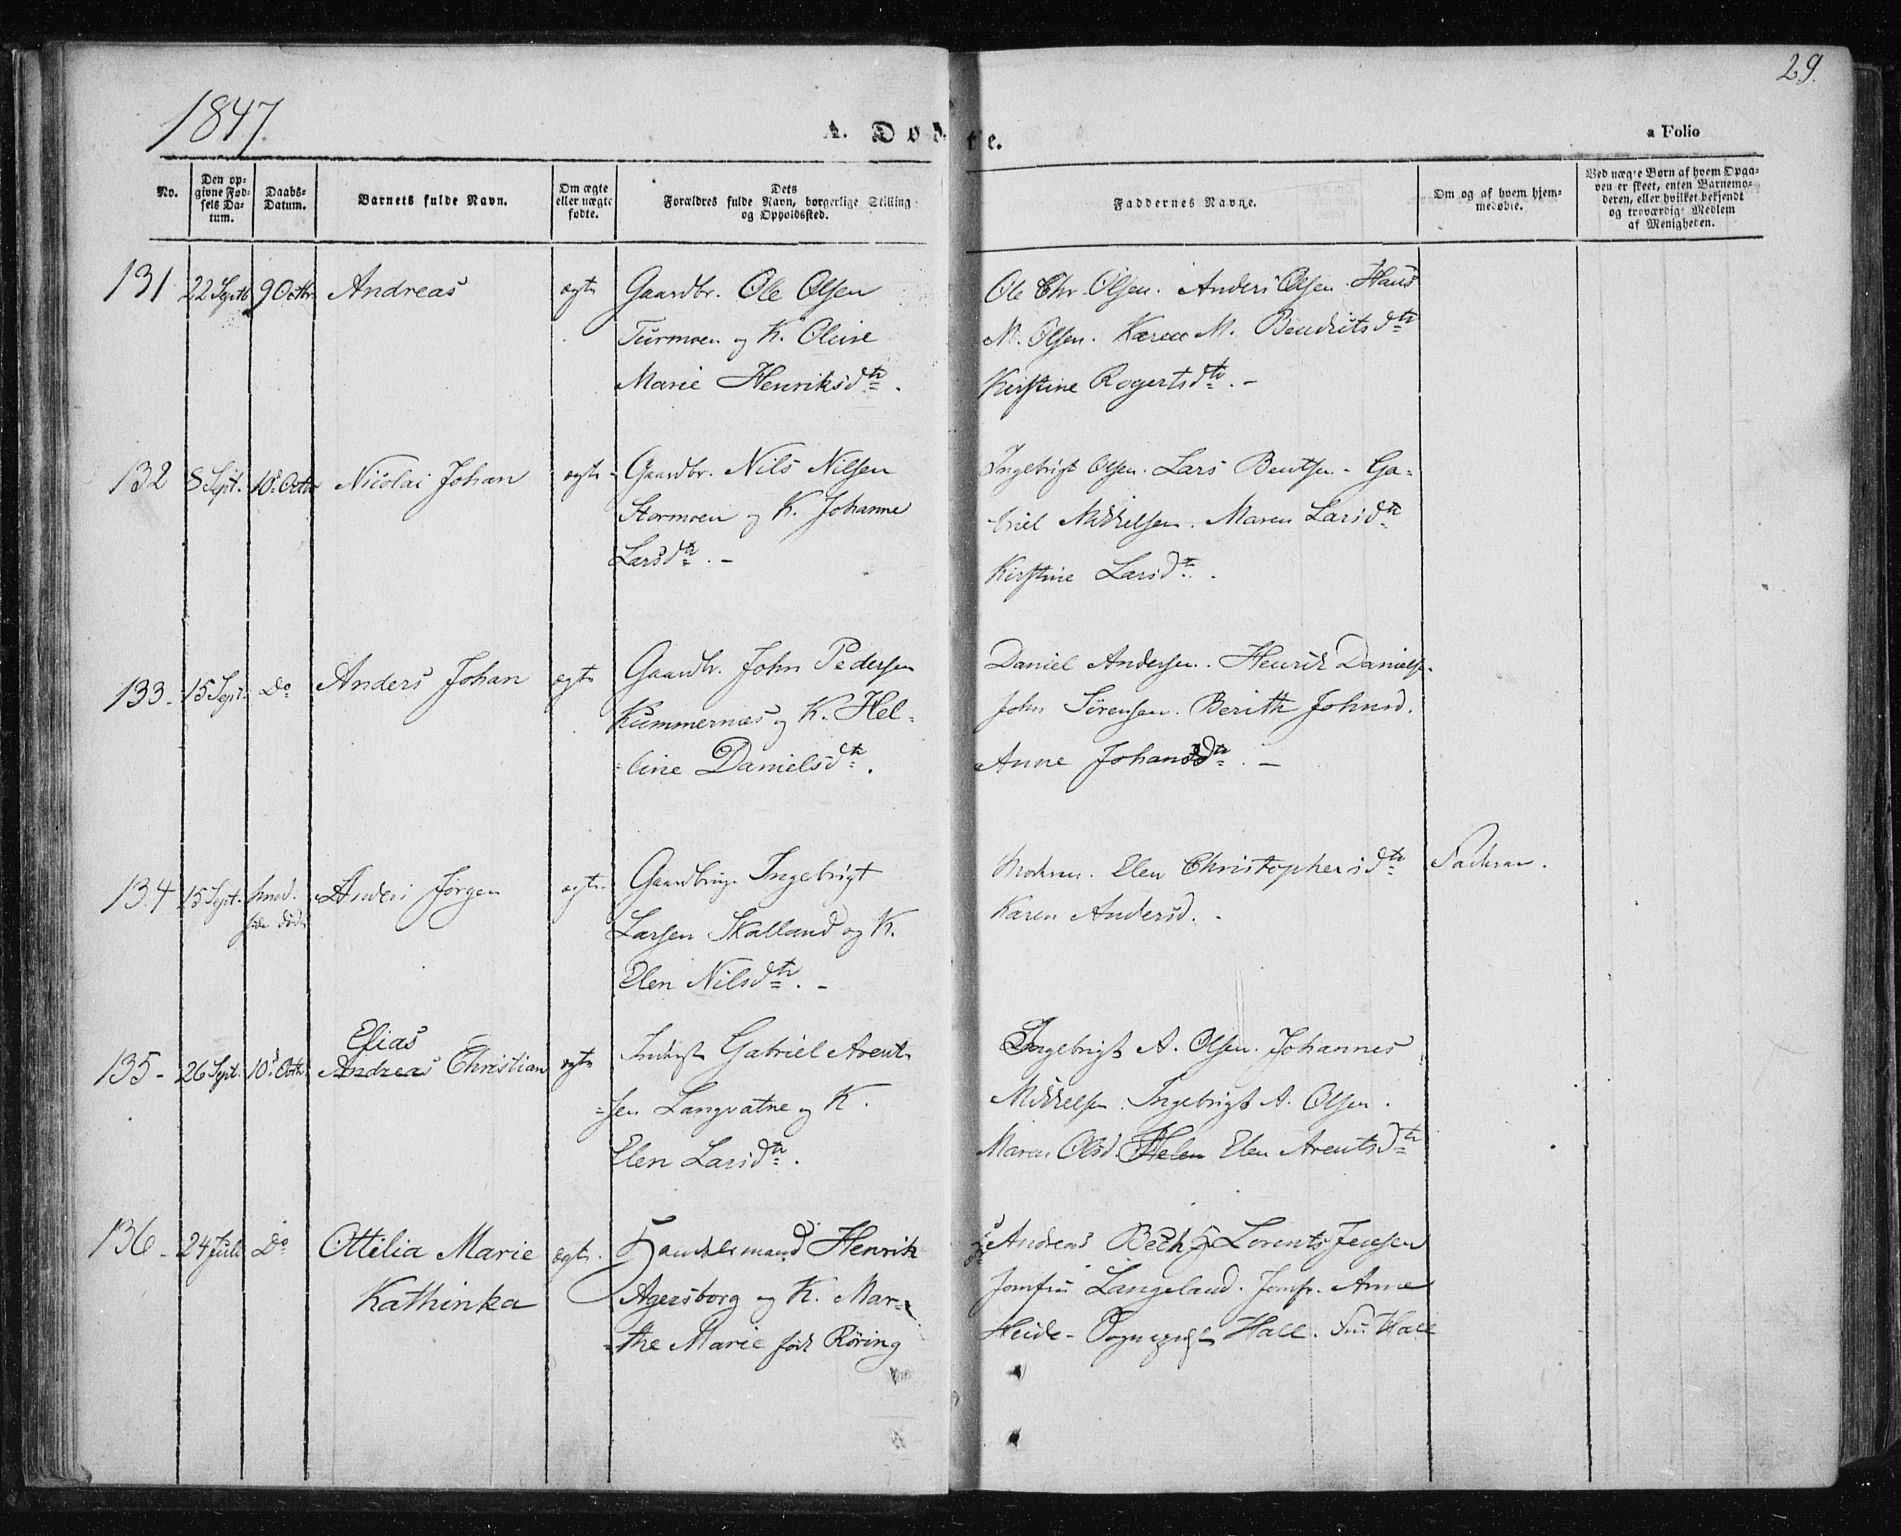 1847.
A. Døbte.
29.
a Folio
No.
Den opgivne Fødsels Datum.
Daabs-Datum.
Barnets fulde Navn.
Om ægte eller uægte fødte.
Dets Forældres fulde Navn, borgerlige Stilling og Opholdssted.
Faddernes Navne.
Om og af hvem hjemmedøbte.
Ved uægte Børn af hvem Opgaven er skeet, enten Barnemoderen, eller hvilket bekjendt og troværdigt Medlem af Menigheden.
131 22 Septb 9 Octbr Andreas ægte Gaardbr. Ole Olsen
Turmoen og K. Oline
Marie Henriksdtr.
Ole Chr. Olsen. Anders Olsen. Hans
M. Olsen. Karen M. Bendrits dtr
Kirstine Rogertsdtr. -
132 8 Sept. 10 Octbr Nicolai Johan ægte Gaardbr. Nils Nilsen
Stormoen og K. Johanne
Larsdtr. -
Ingebrigt Olsen. Lars Bentsen - Ga-
briel Mikkelsen. Maren Larsdtr
Kirstine Larsdtr.
133 - 15 Sept. Do Anders Johan ægte Gaardbr. John Pedersen
Kummernæs og K. Hel-
-line Danielsdtr.
Daniel Andersen. Henrik Daniels.
John Sørensen. Berith Johnsd.
Anne Johansdtr. -
134 15 Sept. Anders Jørgen ægte. Gaardbrug. Ingebrigt
Larsen Skalland og K.
Elen Nilsdtr. -
Modren. Elen Christophersdtr
Karen Andersd. -
Fadren.
135 - 26 Sept. 10 Octb. Elias
Andreas Christian ægte Gabriel Arent-
-sen Langvatne og K.
Elen Larsdtr.
Ingebrigt A. Olsen. Johannes
Mikkelsen. Ingebrigt A. Olsen.
Maren Olsd. Helen Elen Arentsdtr
136 - 24 Juli Do Ottilia Marie ægte. Handelsmand Henrik
Kathinka
Agersborg og K. Mar-
-the Marie født Röring
Andreas Bech Lorents Jensen
Jomfru Langeland. Jomfr. Anne
Heide - Hall. Fru Hall